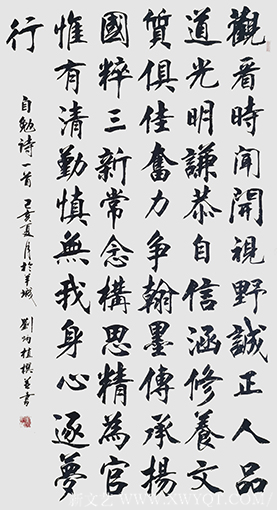 觀看時聞開視野誠正人品
道光明謙恭自信涵修養文
質俱佳奮力爭翰墨傳承揚
國粹三新常念構思精為官
惟有清勤慎無我身心逐夢
行
自勉詩一首 己亥夏月於羊城 劉 撰並書